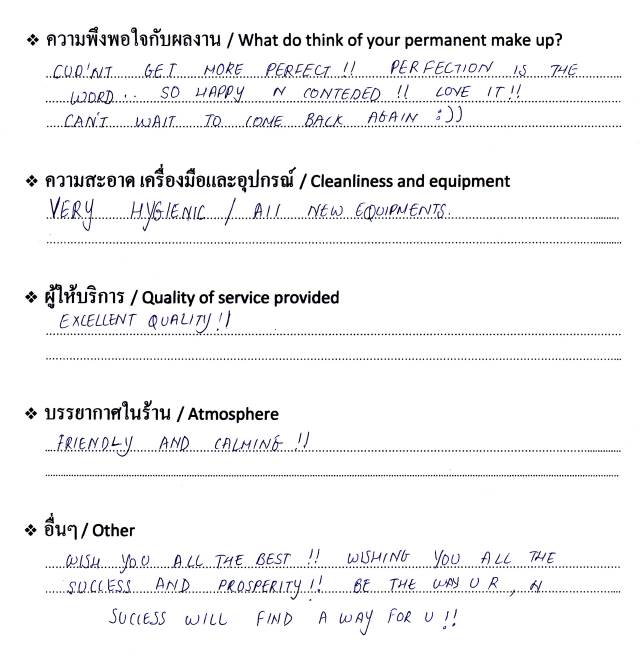 ❖ ความพึงพอใจกับผลงาน / What do think of your permanent make up?
CUD'NT GET MORE PERFECT !! PERFECTION IS THE
WORD.. SO HAPPY N CONTEDED !! LOVE IT !!
CAN'T WAIT TO COME BACK AGAIN :))
❖ ความสะอาด เครื่องมือและอุปกรณ์ / Cleanliness and equipment
VERY HYGIENIC / All NEW EQUIPMENTS.
❖ ผู้ให้บริการ / Quality of service provided
EXCELLENT QUALITY !!
❖ บรรยากาศในร้าน / Atmosphere
FRIENDLY AND CALMING !!
❖ อื่นๆ / Other
WISH YOU ALL THE BEST !! WISHING YOU ALL THE
SUCCESS AND PROSPERITY !! BE THE WAY U R, N
SUCCESS WILL FIND A WAY FOR U !!